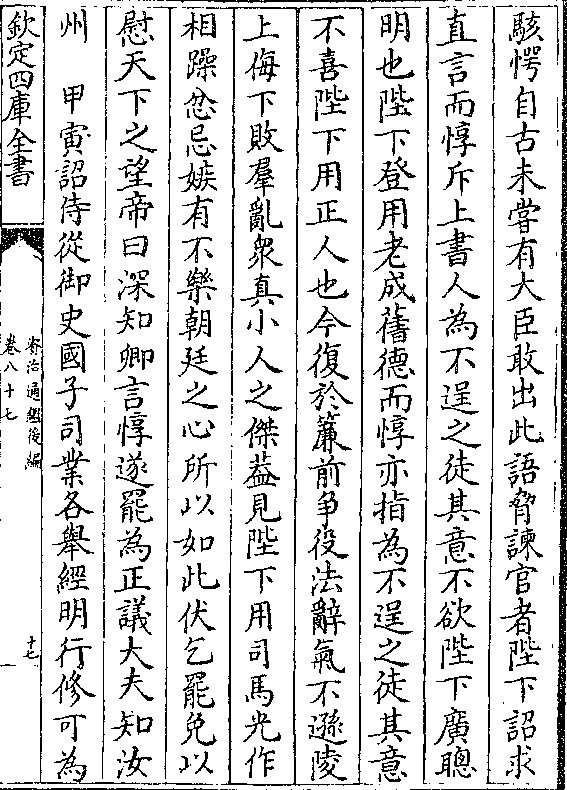 駭愕自古未嘗有大臣敢出此語脅諫官者陛下詔求
直言而惇斥上書人為不逞之徒其意不欲陛下廣聰
明也陛下登用老成舊德而惇亦指為不逞之徒其意
不喜陛下用正人也今復於簾前爭役法辭氣不遜陵
上侮下敗羣亂衆真小人之傑葢見陛下用司馬光作
相躁忿忌嫉有不樂朝廷之心所以如此伏乞罷免以
慰天下之望帝曰深知卿言惇遂罷為正議大夫知汝
州　甲寅詔侍從御史國子司業各舉經明行修可為
欽定四庫全書
資治通鑑後編
卷八十七
十七